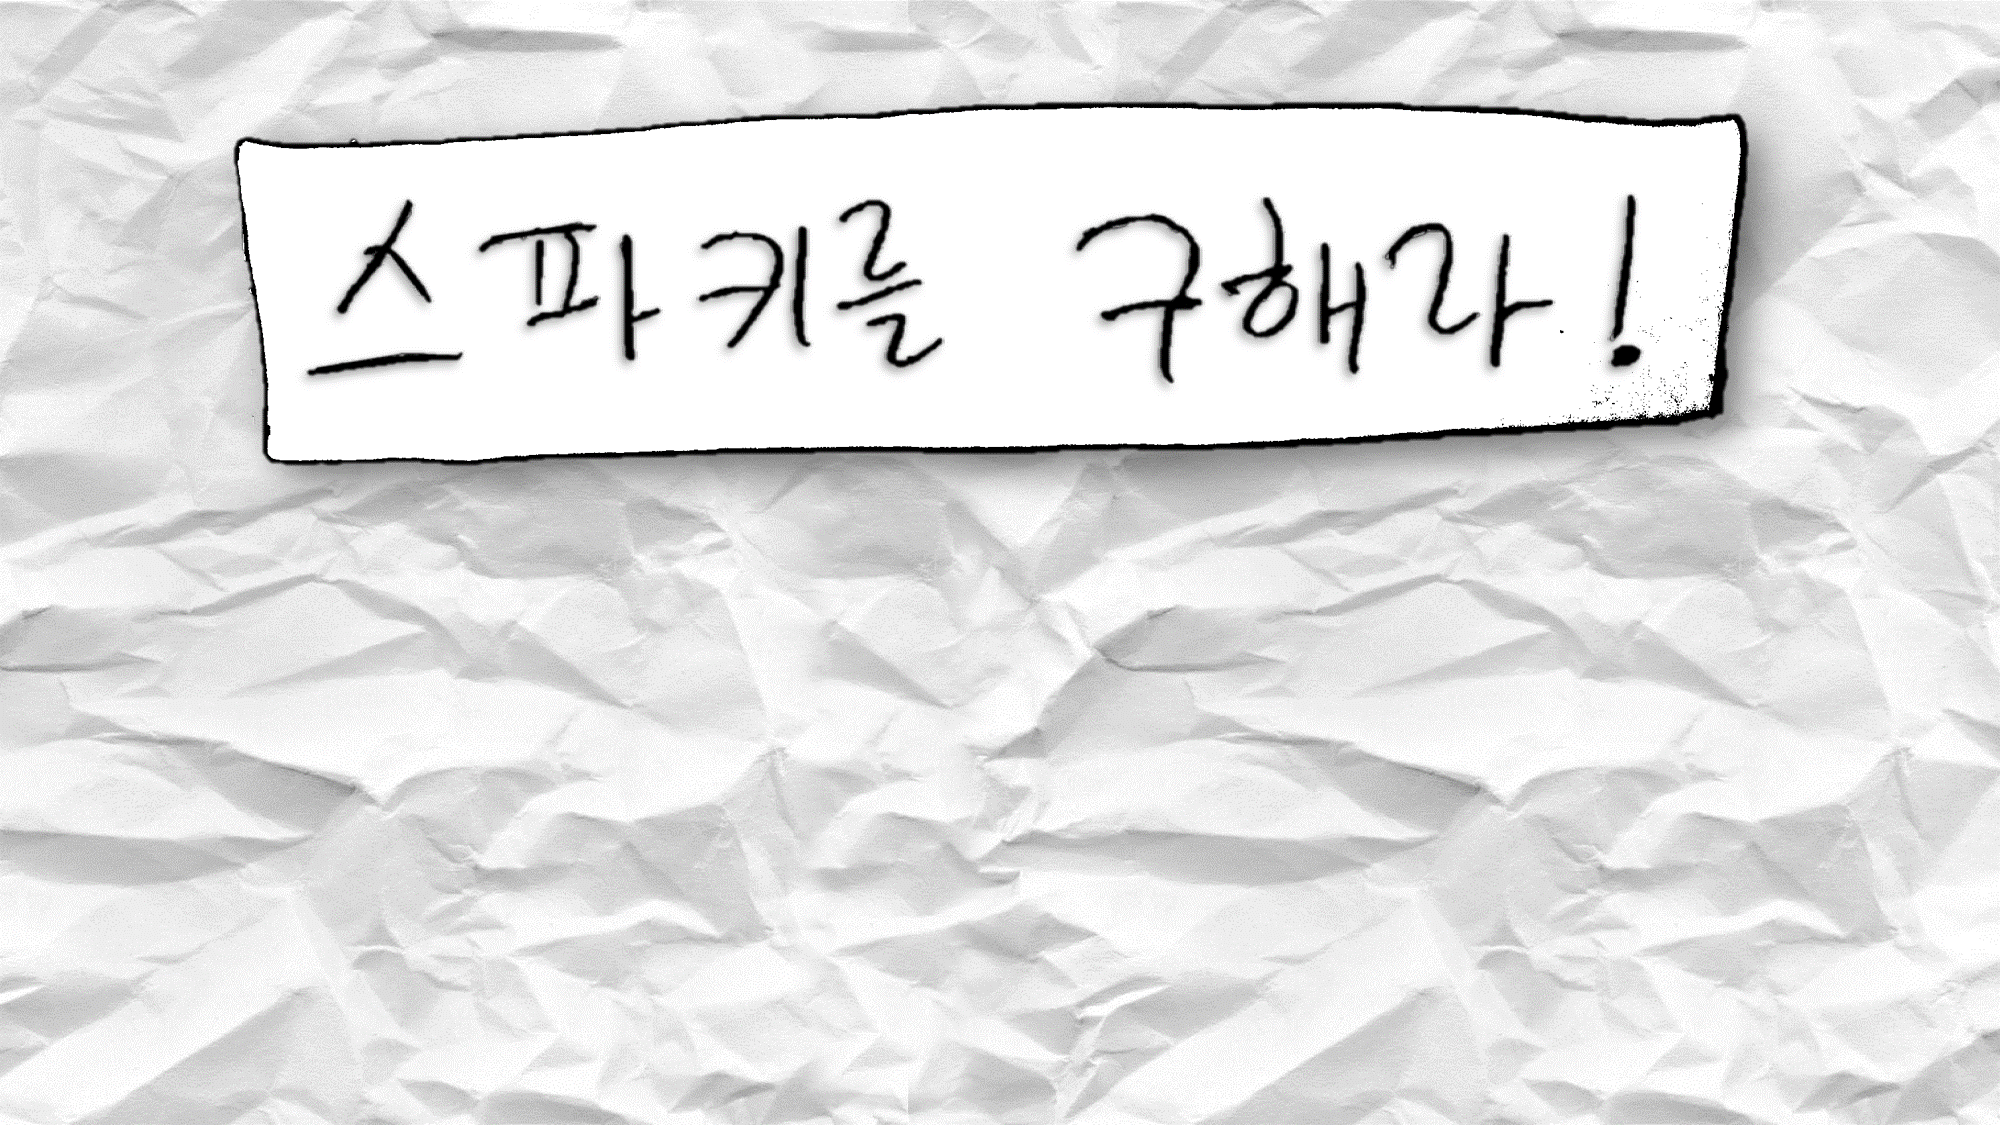 스파키를 구해라!